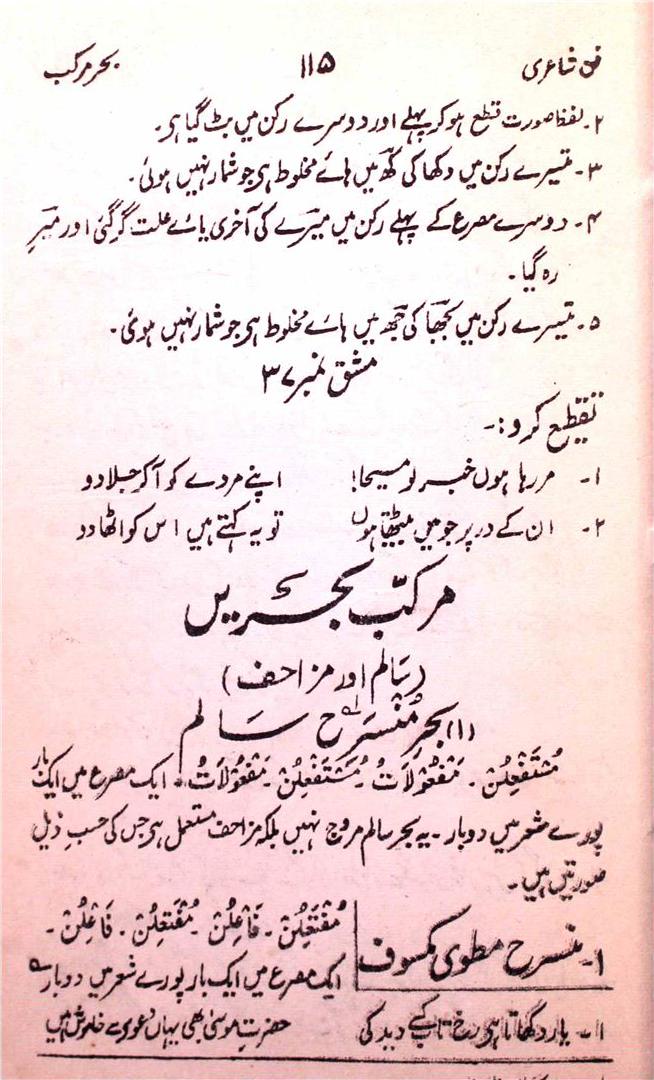 فن شاعری ۱۱۵ بحر مرکب
۲۔ لفظ صورت قطع ہو کر پہلے اور دوسرے رکن میں بٹ گیا ہر۔
۳۔ تیسرے رکن میں دکھا کی کھ میں ہائے مخلوط ہر جو شمار نہیں ہوئی۔
۴۔ دوسرے مصرع کے پہلے رکن میں میرے کی آخری یائے علت گر گئی اور میر
رہ گیا۔
۵۔ تیسرے رکن میں بجھا کی جھ میں ہائے مخلوط ہر جو شمار نہیں ہوئی۔
مشق نمبر ۳۷
تقطیع کرو:۔
۱۔ مر رہا ہوں خبر لو مسیحا! اپنے مردے کو آ کر جلا دو
۲۔ ان کے در پر جو میں بیٹھتا ہوں تو یہ کہتے ہیں اس کو اٹھا دو
مرکّب بحریں
(سالم اور مزاحف)
(۱) بحر مُنْسَرِح سالم
مُسْتَفْعِلُنْ۔ مَفْعُوْلَاتُ۔ مُسْتَفْعِلُنْ۔ مَفْعُوْلَاتُ۔ ایک مصرع میں ایک بار
پورے شعر میں دو بار۔ یہ بحر سالم مروج نہیں بلکہ مزاحف مستعمل ہر جس کی حسبِ ذیل
صورتیں ہیں۔
۱۔ منسرح مطوی مکسوف
مُفْتَعِلُنْ۔ فَاعِلُنْ۔ مُفْتَعِلُنْ۔ فَاعِلُنْ۔
ایک مصرع میں ایک بار پورے شعر میں دو بار
۱۔ یار دکھاتا ہر رخ تاب کسے دید کی حضرتِ موسیٰ بھی یہاں دعوی سے خاموش ہیں